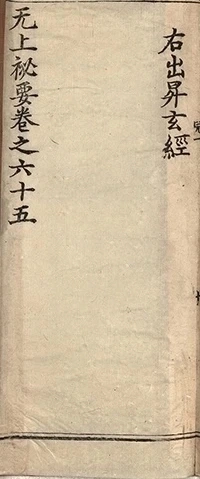 右出昇玄經
无上祕要卷之六十五